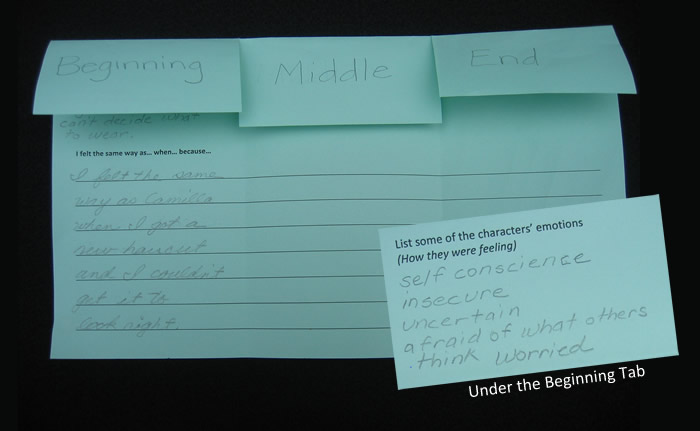 Beginning
Middle
End
can't decide what
to wear.
I felt the same way as... when... because...
I felt the same
way as Camilla
when I got a
new haircut
and I couldn't
get it to
look right.
List some of the characters' emotions
(How they were feeling)
self conscience
insecure
uncertain
afraid of what others
think worried
Under the Beginning Tab